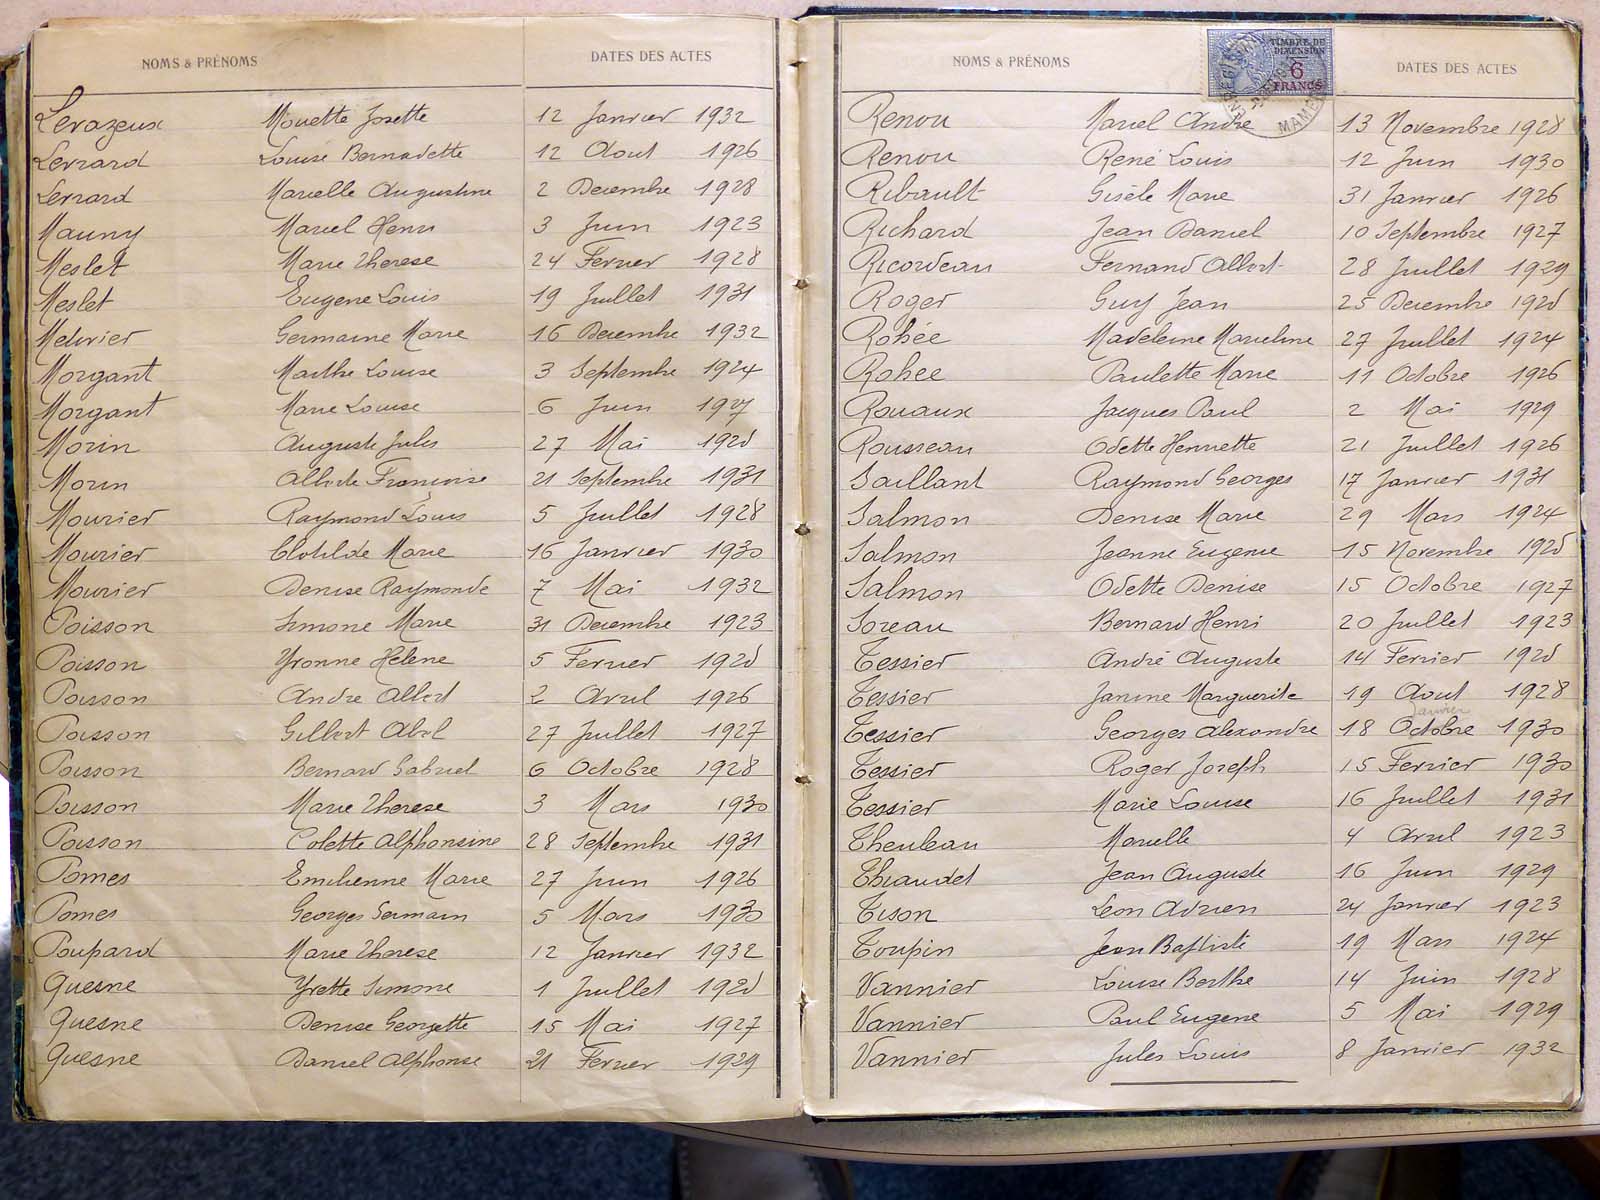 NOMS & PRÉNOMS DATES DES ACTES
Levazeux Mouette Josette 12 Janvier 1932
Levrard Louise Bernadette 12 Aout 1926
Levrard Marcelle Augustine 2 Decembre 1928
Mauny Marcel Henri 3 Juin 1923
Meslet Marie Therese 24 Fevrier 1928
Meslet Eugene Louis 19 Juillet 1931
Métivier Germaine Marie 16 Decembre 1932
Morgant Marthe Louise 3 Septembre 1924
Morgant Marie Louise 6 Juin 1927
Morin Auguste Jules 27 Mai 1925
Morin Francoise 21 Septembre 1931
Mourier Raymond Louis 5 Juillet 1928
Mourier Clotilde Marie 16 Janvier 1930
Mourier Denise Raymonde 7 Mai 1932
Poisson Simone Marie 31 Decembre 1923
Poisson Yvonne Helene 5 Fevrier 1925
Poisson Andre Albert 2 Avril 1926
Poisson Gilbert Abel 27 Juillet 1927
Poisson Bernard Gabriel 6 Octobre 1928
Poisson Marie Therese 3 Mars 1930
Poisson Colette Alphonsine 28 Septembre 1931
Pomes Emilienne Marie 27 Juin 1926
Pomes Georges Germain 5 Mars 1930
Poupard Marie Therese 12 Janvier 1932
Quesne Yvette Simone 1 Juillet 1925
Quesne Denise Georgette 15 Mai 1927
Quesne Daniel Alphonse 21 Fevrier 1929
NOMS & PRÉNOMS DATES DES ACTES
TIMBRE DE
DIMENSION
6
FRANCS
Renou Marcel André 13 Novembre 1928
Renou René Louis 12 Juin 1930
Ribault Gisèle Marie 31 Janvier 1926
Richard Jean Daniel 10 Septembre 1927
Ricordeau Fernand Albert 28 Juillet 1929
Roger Guy Jean 25 Decembre 1925
Rohée Madeleine Marceline 27 Juillet 1924
Rohée Paulette Marie 11 Octobre 1926
Rouaux Jacques Paul 2 Mai 1929
Rousseau Odette Henriette 21 Juillet 1926
Saillant Raymond Georges 17 Janvier 1931
Salmon Denise Marie 29 Mars 1924
Salmon Jeanne Eugenie 15 Novembre 1925
Salmon Odette Denise 15 Octobre 1927
Soreau Bernard Henri 20 Juillet 1923
Tessier André Auguste 14 Fevrier 1925
Tessier Janine Marguerite 19 Aout 1928
Janvier
Tessier Georges Alexandre 18 Octobre 1930
Tessier Roger Joseph 15 Fevrier 1930
Tessier Marie Louise 16 Juillet 1931
Theuleau Marcelle 4 Avril 1923
Thiaudet Jean Auguste 16 Juin 1929
Tison Leon Adrien 24 Janvier 1923
Toupin Jean Baptiste 19 Mars 1924
Vannier Louise Berthe 14 Juin 1928
Vannier Paul Eugene 5 Mai 1929
Vannier Jules Louis 8 Janvier 1932